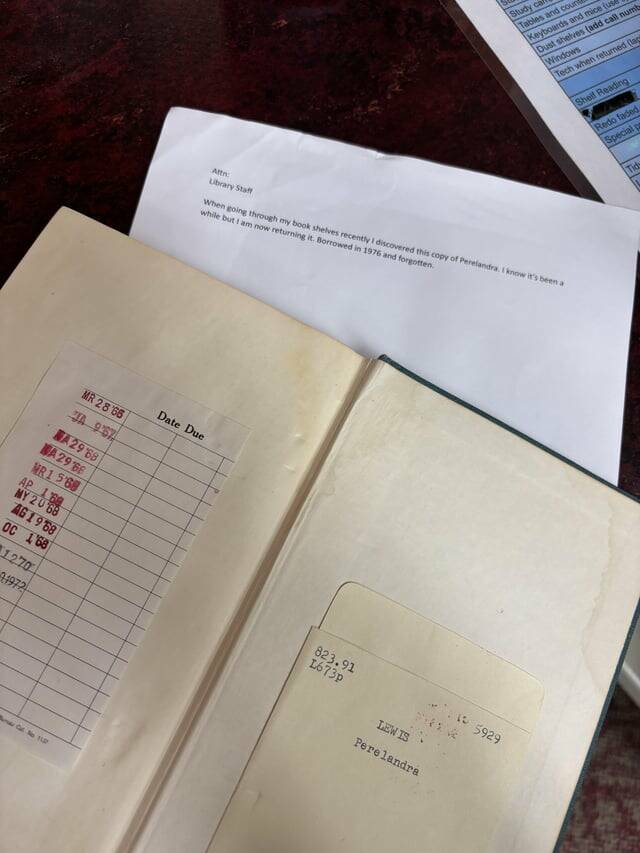 Study
Tables and
Keyboards and mice
Dust shelves (add call
Windows
Tech when returned
Shelf Reading
Redo faded
Special
Attn:
Library Staff
When going through my book shelves recently I discovered this copy of Perelandra. I know it's been a
while but I am now returning it. Borrowed in 1976 and forgotten.
Date Due
MR 28'66
JA 9'67
AP 1'68
MY 20'68
AG 19'68
OC 1'68
1972
823.91
L673p
5929
LEWIS
Perelandra